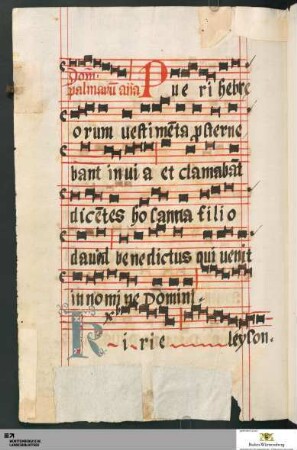 Dom̄.
palmarū añā P ue ri hebre
o rum uestimēta p̱sterne
bant in ui a et clamabāt
dicētes ho sanna fili o
dauid bene dictus qui uenit
in no mi ne Domini.
K i rie leyson.
WÜRTTEMBERGISCHE
LANDESBIBLIOTHEK
Baden-Württemberg